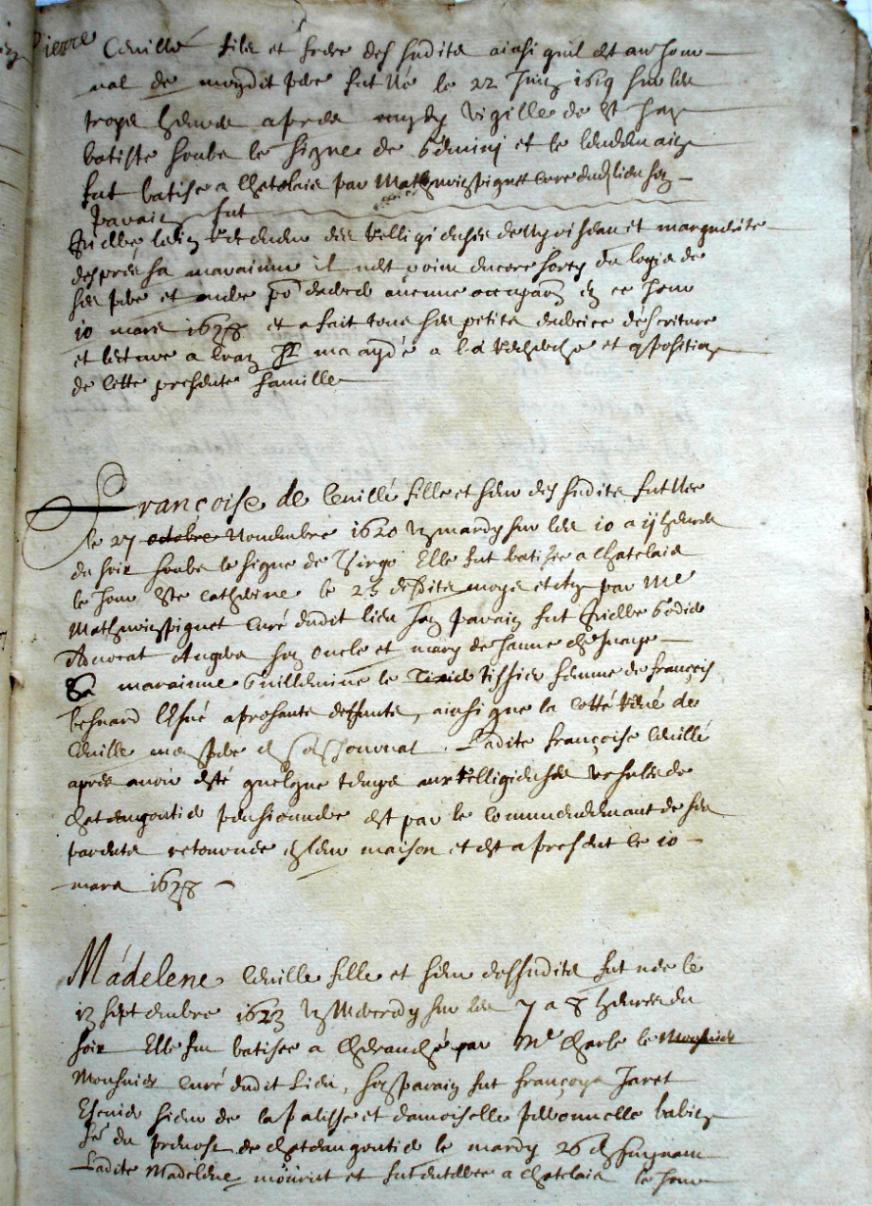 Pierre Cevillé fils et frere des susdits ainsi quil est au jour
nal de mondit pere fut Né le 22 Juin 1619 sur les
troys heures apres midy vigille de St Jean
batiste soubz le signe de Gemini et le lendemain
fut batisé a Chatelais par Mathurin pignet curé dud lieu son
parain fut
des religieuses de et marguerite
després sa maraine il nest poinct encore sorty du logis de
ses pere et mere po aucune occupaon en ce jour
10 mars 1638 et a fait tous ses petits descriture
et lecture a ma aydé a la recherche et composition
de cette presente famille
Françoise de Cevillé fille et sœur des susdits fut Née
le 27 octobre Novembre 1620 un mardy sur les 10 a 11 heures
du soir soubz le signe de Virgo Elle fut batisée a Chatelais
le jour Ste catherine le 25 desdits moys et an par Me
Mathurin pignet curé dudit lieu son parain fut
Advocat Angers son oncle et mary de Janne
Sa maraine Guillemine le Tissier femme de françois
besnard a presente deffunte, ainsi que la cotté René de
Cevillé mon pere en son Journal. Ladite françoise Cevillé
apres avoir esté quelque temps aux religieuses Ursules de
chateaugontier pensionnaire est par le commendement de ses
parents retournée en leur maison et est a present ce 10
mars 1638
Madelene Cevillé fille et sœur dessusdits fut née le
13 septembre 1623 un Mecredy sur les 7 a 8 heures du
soir Elle fut batisée a Cherancé par Me Charle le
Mousnier curé dudit Lieu, son parain fut françoys Jaret
Escuier sieur de la palisse et damoiselle peronnelle
du prevost de chateaugontier le mardy 26 en suyvant
Ladite Madelene mourut et fut enterrée a chatelais le jour